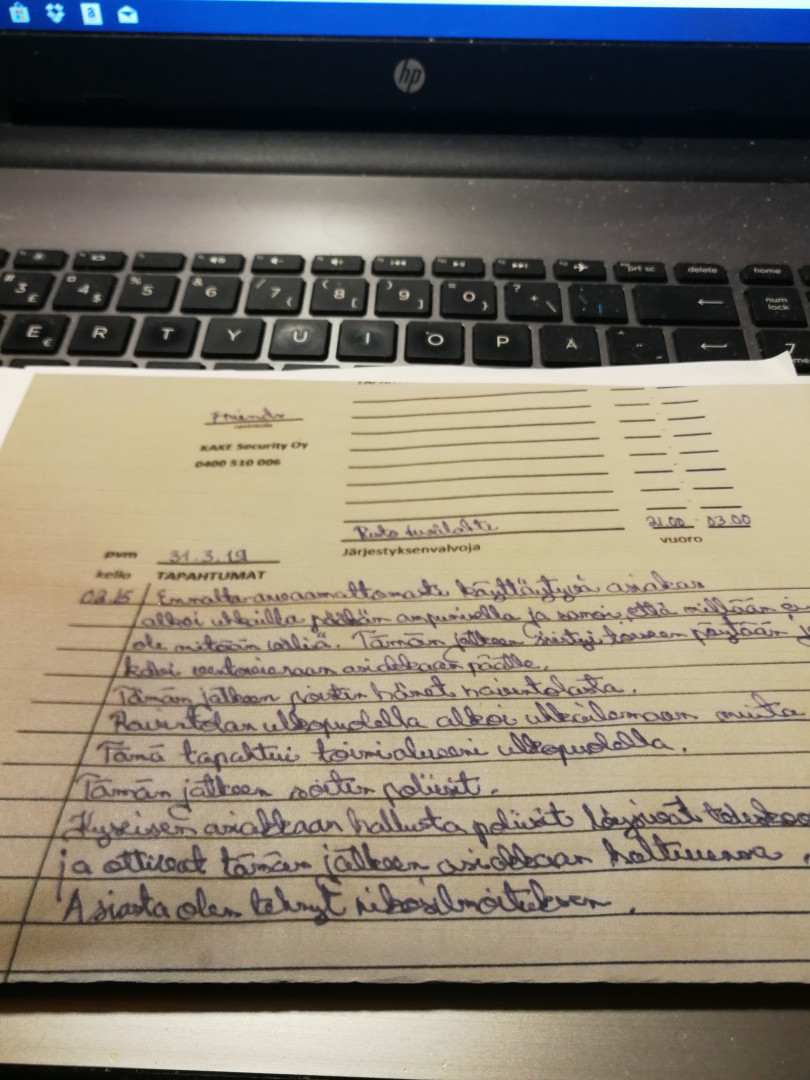 hp
prt sc delete home
3 £ 4 $ 5 % 6 & 7 / ( 8 [ 9 ) ] 0 = } ? + \ num lock
E € R T Y U I O P Å 7
Friends
KAKE Security Oy
0400 510 006
21.00 - 03.00
Järjestyksenvalvoja vuoro
pvm 31.3.19
kello TAPAHTUMAT
02.15 Ennalta-arvaamattomasti käyttäytyvä asiakas
alkoi uhkailla päähän ampumisella ja sanoi, että millään ei
ole mitään väliä. Tämän jälkeen siirtyi toiseen pöytään
kävi ventovieraan asiakkaan päälle.
Tämän jälkeen poistin hänet ravintolasta.
Ravintolan ulkopuolella alkoi uhkailemaan muita
Tämä tapahtui toimialueeni ulkopuolella.
Tämän jälkeen soitin poliisit.
Kyseisen asiakkaan hallusta poliisit löysivät
ja ottivat tämän jälkeen asiakkaan haltuunsa.
Asiasta olen tehnyt rikosilmoituksen.